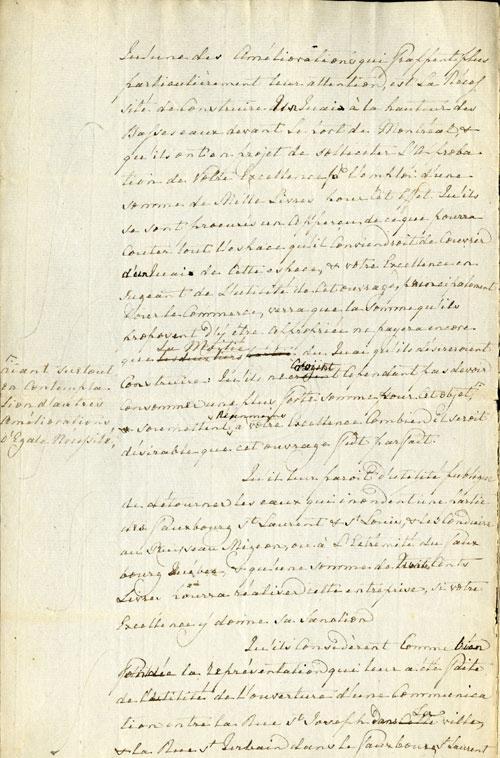 Qu'une des Améliorations qui frappent plus
particulièrement leur attention, est La Néces
sité de Construire Un Quai à la hauteur des
Basses eaux devant Le Port de Montréal, &
qu'ils ont en projet de solliciter L'Aproba
tion de Votre Excellence, pr. L'emploi d'une
somme de Mille Livres pour cet effet. Qu'ils
se sont procurés un Apperçu de ce que pourra
Couter tout L'espace qu'il Conviendroit de Couvrir
d'un Quai de cette espece, & votre Excellence en
Jugeant de L'utilité de cet ouvrage, principalement
Pour le Commerce, verra que la Somme qu'ils
proposent d'y être Appropriée ne payera encore
que La Moitié du Quai qu'ils désireroient
Construire. Qu'ils ne croyent cependant pas devoir
Consommer une plus forte somme pour cet objet,
étant surtout
en Contempla
tion d'autres
Améliorations
d'Egale Nécessité,
& soumettent Néanmoins à votre Excellence Combien il seroit
désirable que cet ouvrage fût parfait.
Qu'il leur paroit d'utilité publique
de détourner les eaux qui inondent une partie
des Fauxbourg St. Laurent & St. Louis, & les Conduire
au Ruisseau Migeon, ou à L'Extrémité du Faux
bourg Quebec, & qu'une somme de Cents
Livres pourra réaliser cette entreprise, si votre
Excellence y donne sa Sanction
Qu'ils Considèrent Comme bien
fondée la Représentation qui leur a été faite
de l'utilité de l'ouverture d'une Communica
tion entre la Rue St. Joseph dans La ville,
& la Rue St. Urbain dans le Fauxbourg St. Laurent